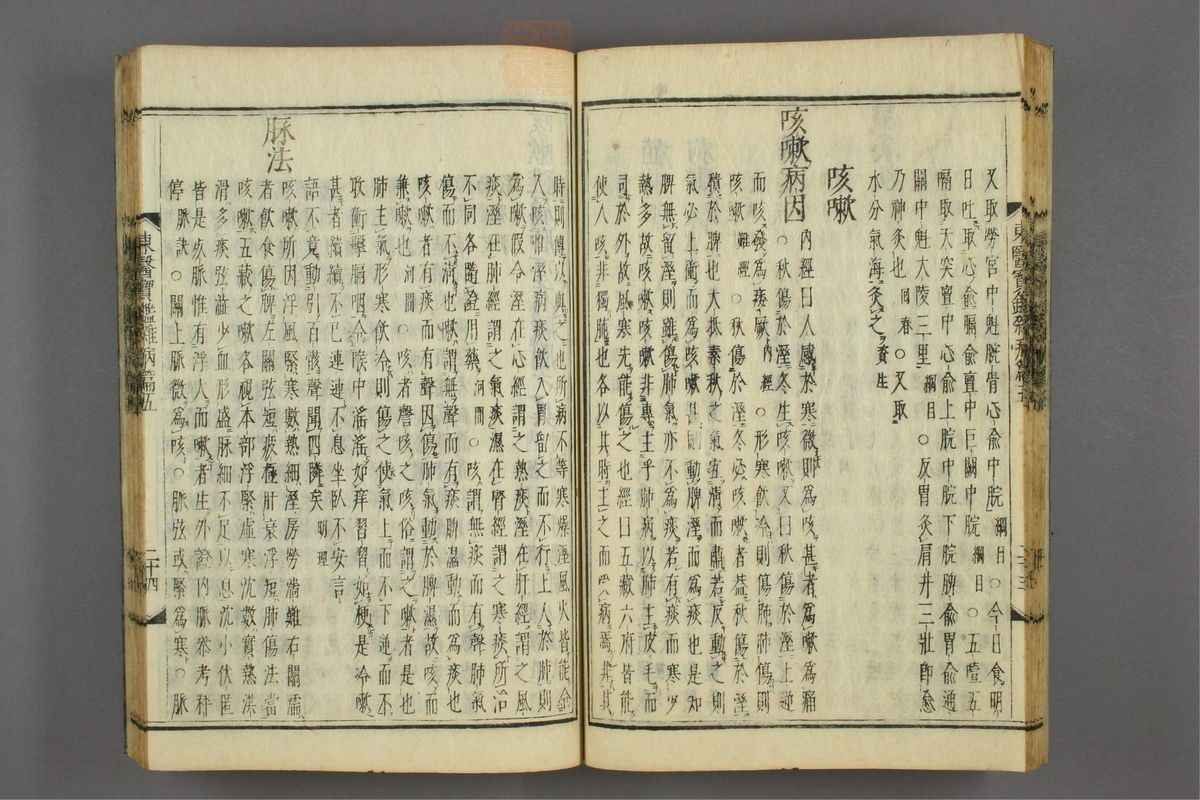 又取勞宮中魁腕骨心俞中脘綱目○今日食明
日吐取心俞膈俞膻中巨闕中脘綱目○五噎五
膈取天突膻中心俞上脘中脘下脘脾俞胃俞通
關中魁大陵三里綱目○反胃灸肩井三壯卽愈
乃神灸也回春○又取
水分氣海灸之資生
咳嗽
咳嗽病因
內經曰人感於寒微則爲咳甚者爲嗽爲痛
○秋傷於溼冬生咳嗽又曰秋傷於溼上逆
而咳發爲痿厥內經○形寒飮冷則傷肺肺傷則
咳嗽難經○秋傷於溼冬必咳嗽者葢秋傷於溼
積於脾也大抵素秋之氣宜淸而肅若反動之則
氣必上衝而爲咳嗽甚則動脾溼而爲痰也是知
脾無留溼則雖傷肺氣亦不爲痰若有痰而寒少
熱多故咳嗽咳嗽非專主乎肺病以肺主皮毛而
司於外故風寒先能傷之也經曰五藏六府皆能
使人咳非獨肺也各以其時主之而受病焉非其
時則傳以與之也所病不等寒燥溼風火皆能令
人咳惟溼病痰飮入胃留之而不行上入於肺則
爲嗽假令溼在心經謂之熱痰溼在肝經謂之風
痰溼在肺經謂之氣痰溼在腎經謂之寒痰所治
不同各隨證用藥河間○咳謂無痰而有聲肺氣
傷而不淸也嗽謂無聲而有痰脾溼動而爲痰也
咳嗽者有痰而有聲因傷肺氣動於脾濕故咳而
兼嗽也河間○咳者謦咳之咳俗謂之嗽者是也
肺主氣形寒飮冷則傷之使氣上而不下逆而不
收衝擊膈咽令喉中淫淫如痒習習如梗是冷嗽
甚者續續不已連連不息坐臥不安言
語不竟動引百骸聲聞四隣矣明理
脉法
咳嗽所因浮風緊寒數熱細溼房勞濇難右關濡
者飮食傷脾左關弦短疲極肝衰浮短肺傷法當
咳嗽五藏之嗽各視本部浮緊虛寒沈數實熱洪
滑多痰弦濇少血形盛脉細不足以息沈小伏匿
皆是死脉惟有浮大而嗽者生外證內脉參考秤
停脉訣○關上脉微爲咳○脉弦或緊爲寒○脉
東醫寶鑑雜病篇五
二十四
東醫寶鑑雜病篇五
二十三